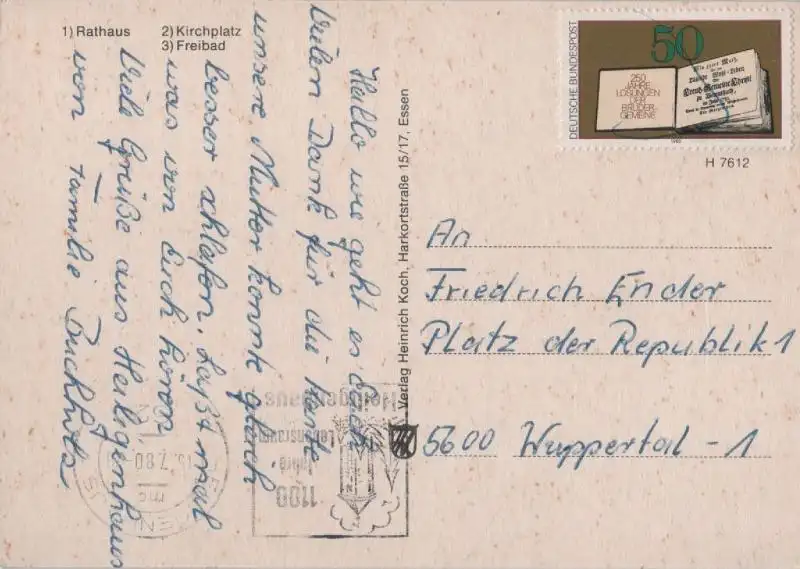 1) Rathaus
2) Kirchplatz
3) Freibad
Hallo wie geht es Euch
Vielen Dank für die Karte
unsere Mutter konnte gleich
besser schlafen. Laßt mal
was von Euch hören
Viele Grüße aus Heiligenhaus
von Familie
Verlag Heinrich Koch, Harkortstraße 15/17, Essen
DEUTSCHE BUNDESPOST
50
250
JAHRE
LOSUNGEN
DER
BRÜDER-
GEMEINE
1980
H 7612
An
Friedrich Ender
Platz der Republik 1
5600 Wuppertal - 1
1100
Jahre
Heiligenhaus